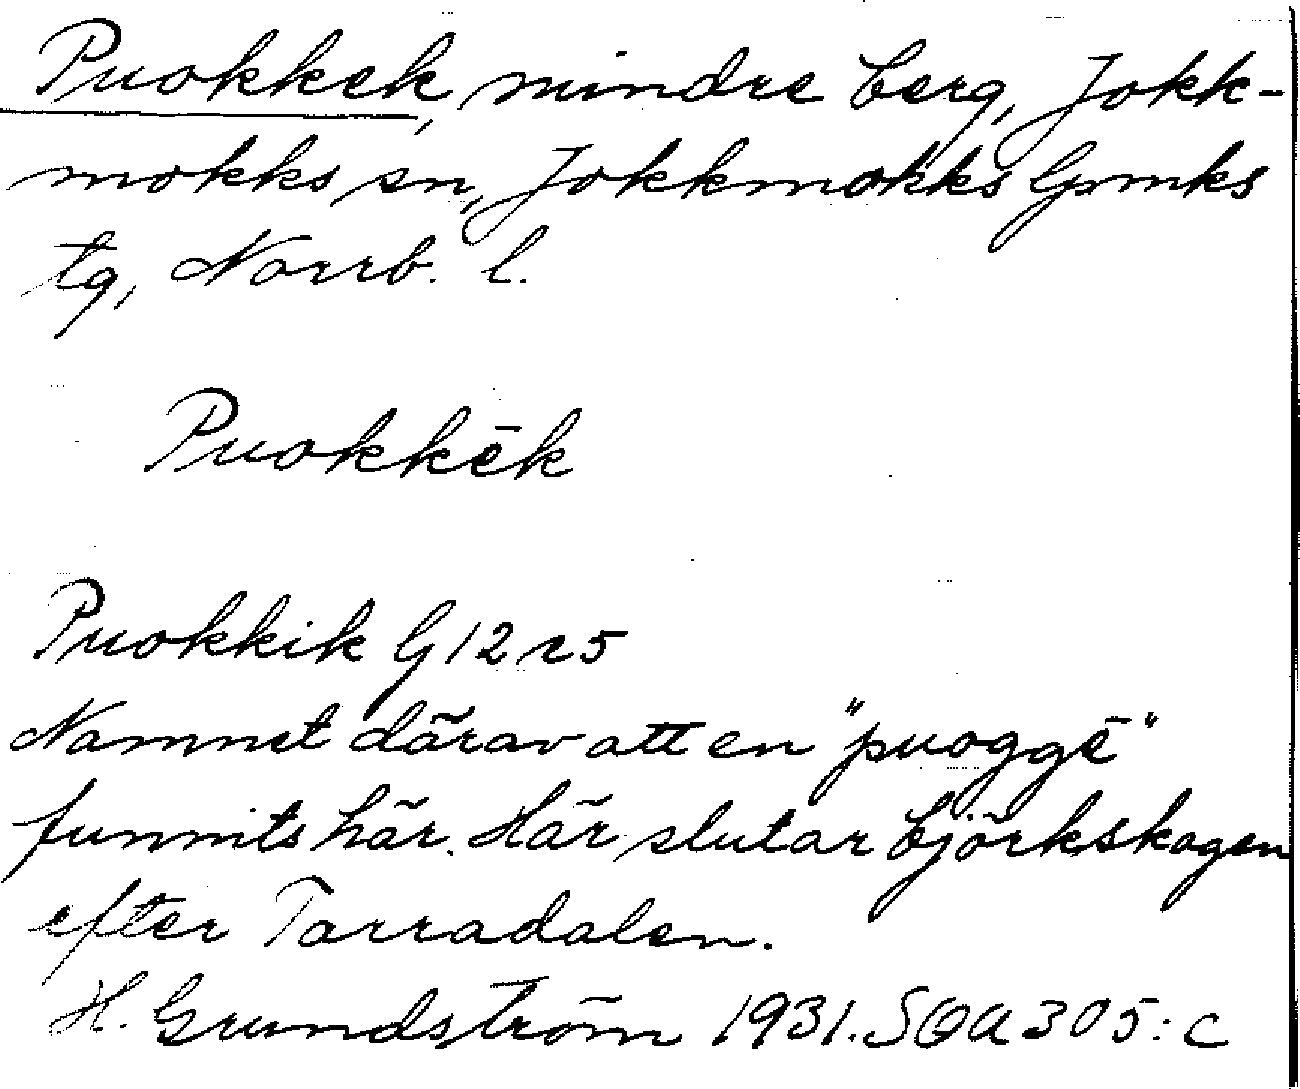 Puokkek, mindre berg, Jokk-
mokks sn, Jokkmokks Gpmks
tg, Norrb. l.
Puokkēk
Puokkik G 12 r5
Namnet därav att en "puoggē"
funnits här. Här slutar björkskogen
efter Tarradalen.
H. Grundström 1931. SOA 305:c